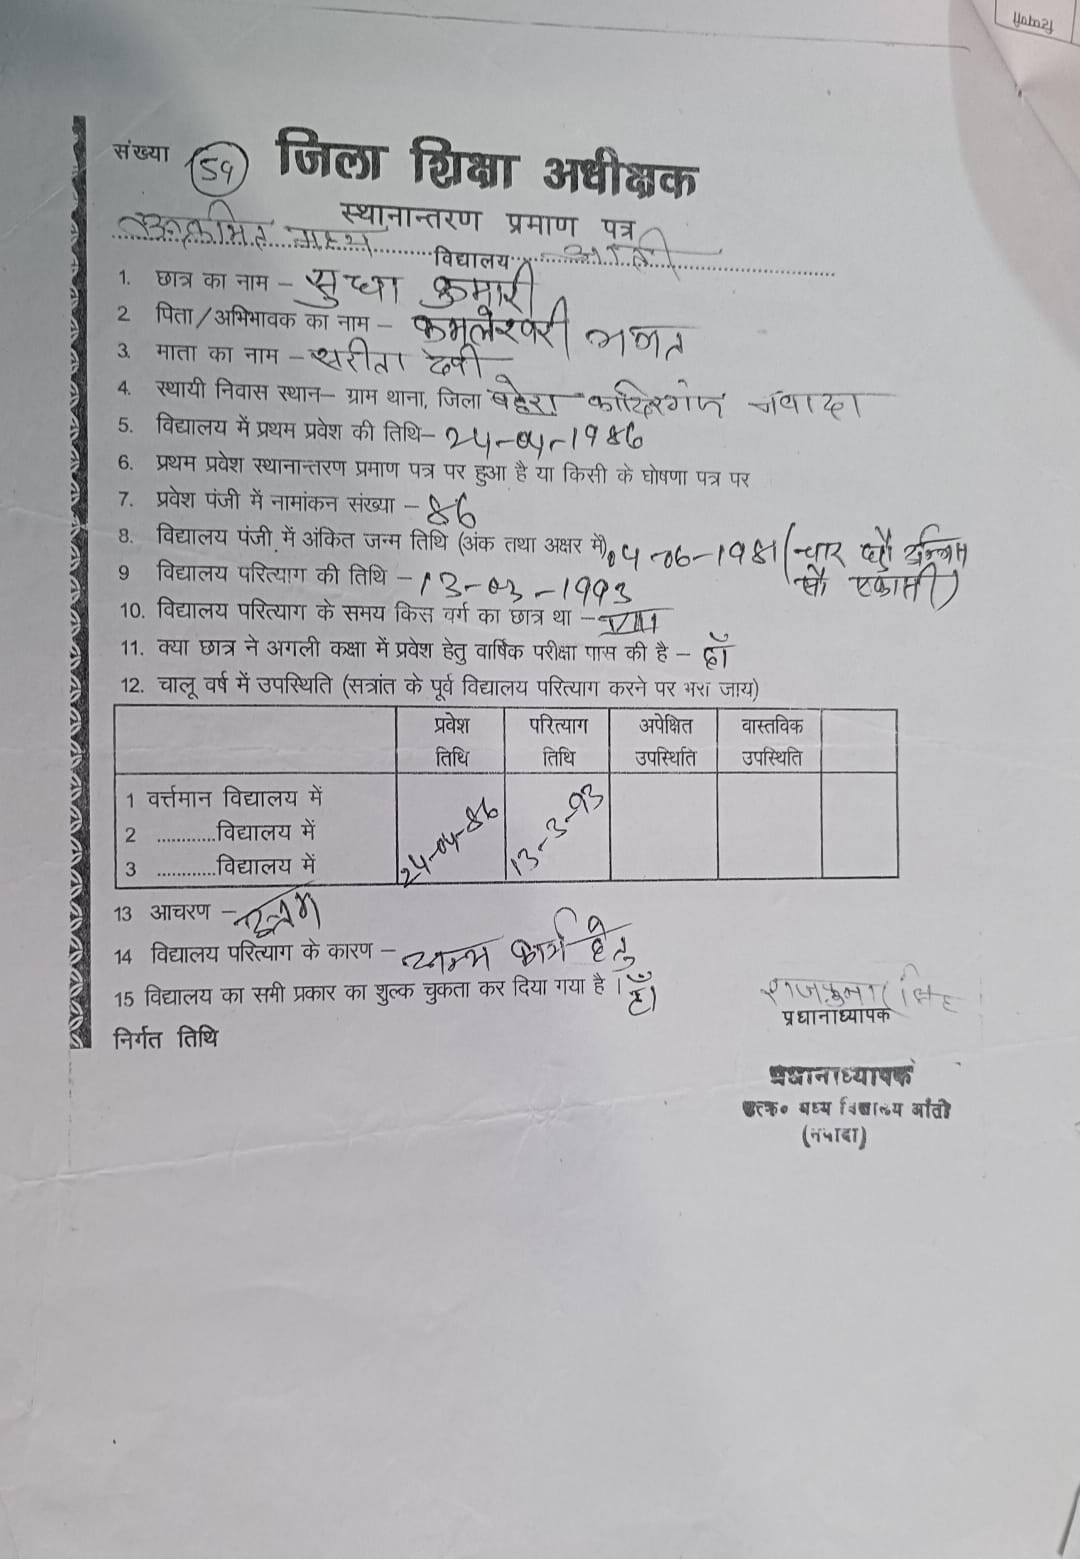 टिप्पणी
संख्या 59 जिला शिक्षा अधीक्षक
स्थानान्तरण प्रमाण पत्र
उत्क्रमित मध्य विद्यालय आँती
1. छात्र का नाम – सुधा कुमारी
2 पिता/अभिभावक का नाम – कमलेश्वरी भगत
3. माता का नाम – सरीता देवी
4. स्थायी निवास स्थान– ग्राम थाना, जिला बहेरा कादिरगंज नवादा
5. विद्यालय में प्रथम प्रवेश की तिथि– 24-04-1986
6. प्रथम प्रवेश स्थानान्तरण प्रमाण पत्र पर हुआ है या किसी के घोषणा पत्र पर
7. प्रवेश पंजी में नामांकन संख्या – 86
8. विद्यालय पंजी में अंकित जन्म तिथि (अंक तथा अक्षर में) 04-06-1981 (चार छौ उन्निस
सौ एकासी)
9 विद्यालय परित्याग की तिथि – 13-03-1993
10. विद्यालय परित्याग के समय किस वर्ग का छात्र था – VIII
11. क्या छात्र ने अगली कक्षा में प्रवेश हेतु वार्षिक परीक्षा पास की है – हाँ
12. चालू वर्ष में उपस्थिति (सत्रांत के पूर्व विद्यालय परित्याग करने पर भरा जाय)
प्रवेश परित्याग अपेक्षित वास्तविक
तिथि तिथि उपस्थिति उपस्थिति
1 वर्त्तमान विद्यालय में 24-04-86 13-3-93
2 ............विद्यालय में
3 ............विद्यालय में
13 आचरण – उत्तम
14 विद्यालय परित्याग के कारण – अन्य कार्य हेतु
15 विद्यालय का सभी प्रकार का शुल्क चुकता कर दिया गया है। हाँ
राजकुमार सिंह
प्रधानाध्यापक
निर्गत तिथि
प्रधानाध्यापक
उत्क० मध्य विद्यालय आँती
(नवादा)